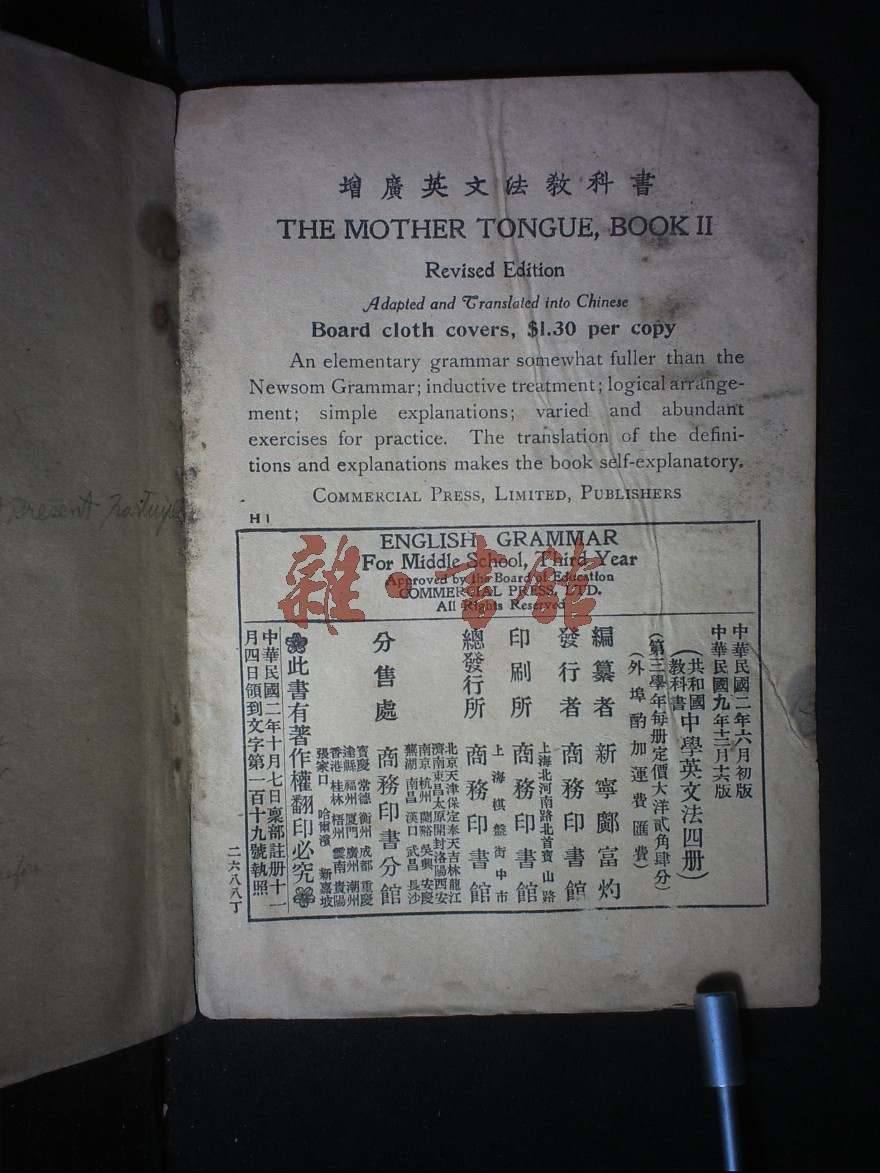 增廣英文法教科書
THE MOTHER TONGUE, BOOK II
Revised Edition
Adapted and Translated into Chinese
Board cloth covers, $1.30 per copy
An elementary grammar somewhat fuller than the
Newsom Grammar; inductive treatment; logical arrange-
ment; simple explanations; varied and abundant
exercises for practice. The translation of the defini-
tions and explanations makes the book self-explanatory.
COMMERCIAL PRESS, LIMITED, PUBLISHERS
H I
ENGLISH GRAMMAR
For Middle School, Third Year
Approved by the Board of Education
COMMERCIAL PRESS, LTD.
All Rights Reserved
雜·書館
中華民國二年六月初版
中華民國九年十二月十六版
(共和國教科書中學英文法四册)
(第三學年每册定價大洋貳角肆分)
(外埠酌加運費匯費)
編纂者 新寧鄺富灼
發行者 商務印書館
上海北河南路北首寶山路
印刷所 商務印書館
上海棋盤街中市
總發行所 商務印書館
北京天津保定奉天吉林龍江
濟南東昌太原開封洛陽西安
南京杭州蘭谿吳興安慶
蕪湖南昌漢口武昌長沙
分售處 商務印書分館
寶慶常德衡州成都重慶
達縣福州厦門廣州潮州
香港桂林梧州雲南貴陽
張家口 哈爾濱 新嘉坡
此書有著作權翻印必究
中華民國二年十月七日稟部註册十一
月四日領到文字第一百十九號執照
二六八八丁
present